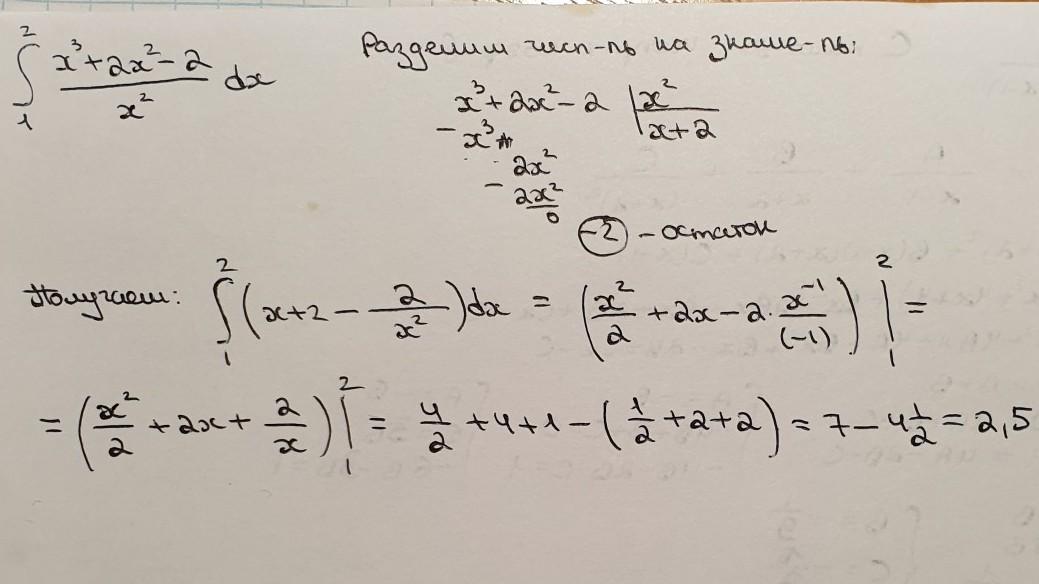 ∫₁² (x³+2x²-2)/x² dx
Разделим числ-ль на знаме-ль:
x³+2x²-2 | x²
- x³ | x+2
2x²
- 2x²
0
-2 - остаток
Получаем: ∫₁² (x+2 - 2/x²)dx = (x²/2 + 2x - 2·x⁻¹/(-1)) |₁² =
= (x²/2 + 2x + 2/x) |₁² = 4/2 + 4 + 1 - (1/2 + 2 + 2) = 7 - 4 1/2 = 2,5